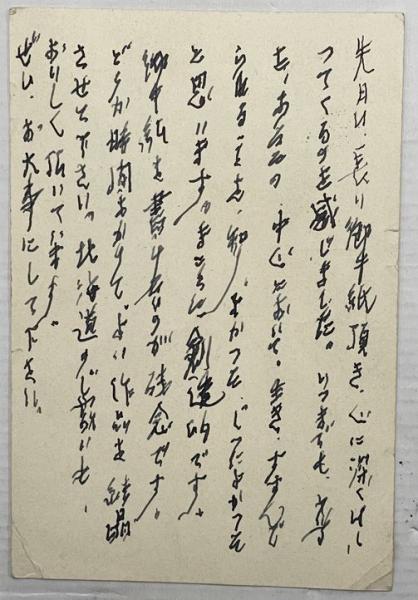 先月は、長い御手紙頂き、心に深くはい
つてくるのを感じました。いつまでも、
を、中心において。生き、すすんで
られることを、よかつた、じつによかつた
と思います。まことに創造的です。
御手紙を書けないのが残念です。
どうか時間をかけて。よい作品を結晶
させて下さい。北海道の
おりしく頂いています。
ぜひ、お大事にして下さい。